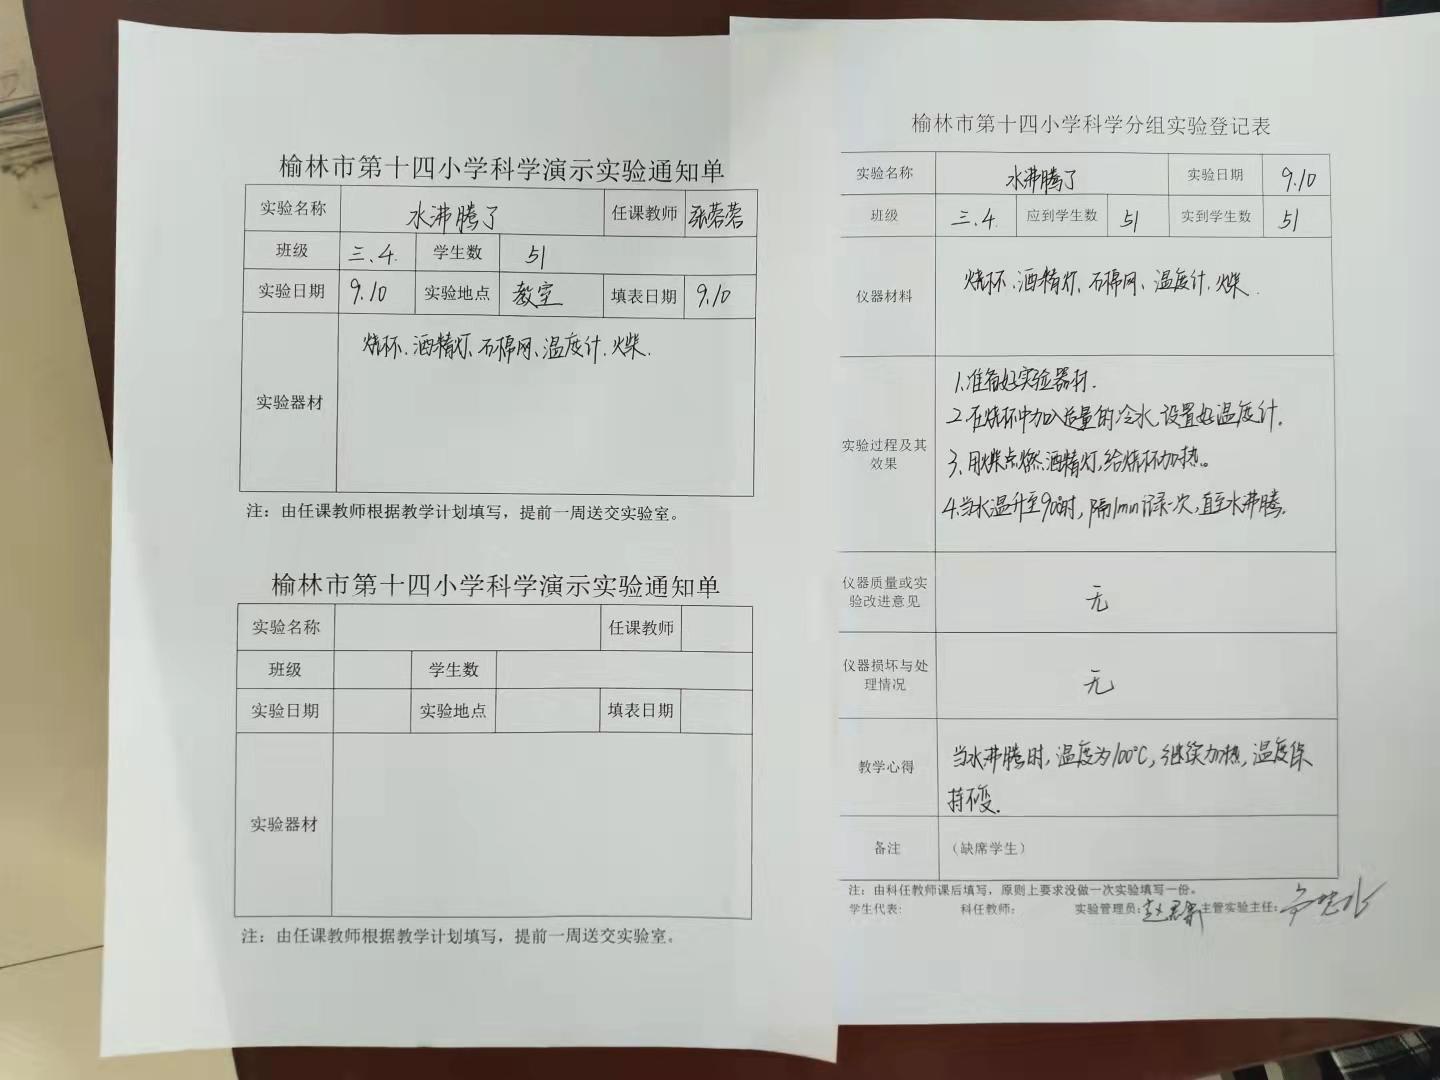 榆林市第十四小学科学演示实验通知单
实验名称 水沸腾了 任课教师 张蓉蓉
班级 三.4. 学生数 51
实验日期 9.10 实验地点 教室 填表日期 9.10
实验器材 烧杯、酒精灯、石棉网、温度计、火柴.
注：由任课教师根据教学计划填写，提前一周送交实验室。
榆林市第十四小学科学演示实验通知单
实验名称 任课教师
班级 学生数
实验日期 实验地点 填表日期
实验器材
注：由任课教师根据教学计划填写，提前一周送交实验室。
榆林市第十四小学科学分组实验登记表
实验名称 水沸腾了 实验日期 9.10
班级 三.4. 应到学生数 51 实到学生数 51
仪器材料 烧杯、酒精灯、石棉网、温度计、火柴.
实验过程及其
效果
1.准备好实验器材.
2.在烧杯中加入适量的冷水,设置好温度计.
3.用火柴点燃酒精灯,给烧杯加热。
4.当水温升至90°时,隔1min记录一次,直至水沸腾.
仪器质量或实
验改进意见
无
仪器损坏与处
理情况
无
教学心得
当水沸腾时,温度为100℃,继续加热,温度保
持不变.
备注 （缺席学生）
注：由科任教师课后填写，原则上要求没做一次实验填写一份。
学生代表: 科任教师: 实验管理员: 主管实验主任: